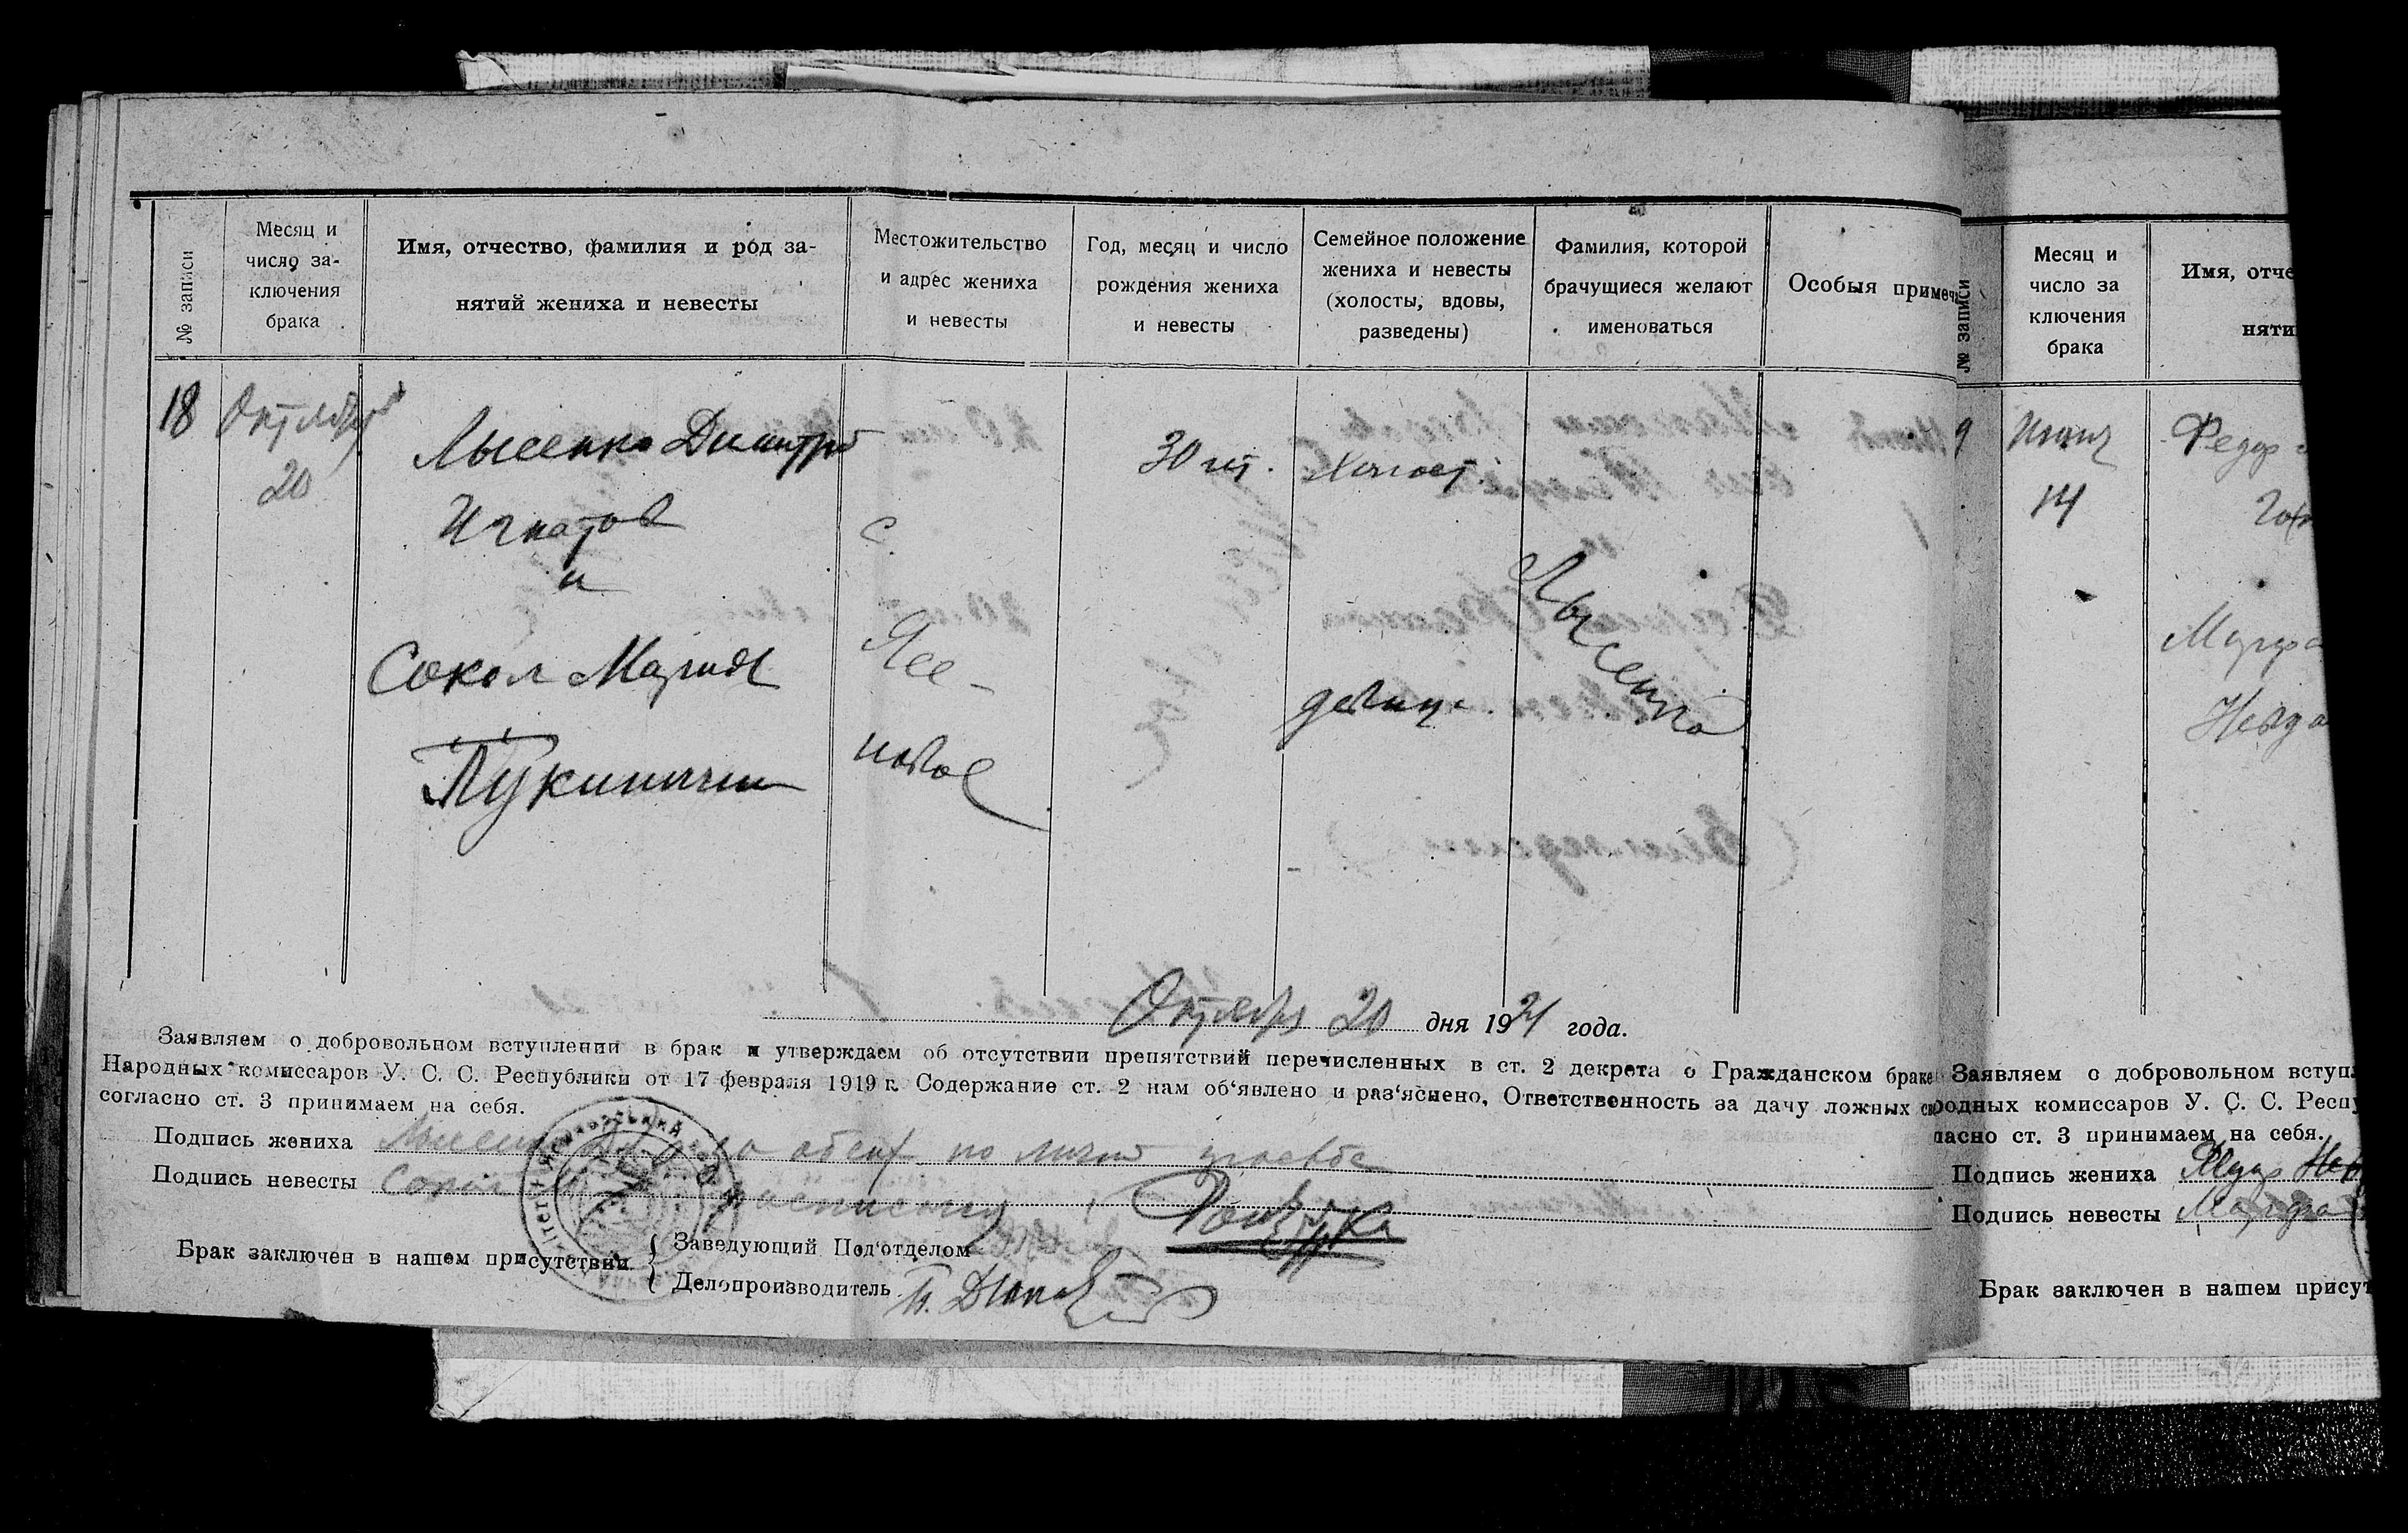 № записи
Месяц и
число за-
ключения
брака
Имя, отчество, фамилия и род за-
нятий жениха и невесты
Местожительство
и адрес жениха
и невесты
Год, месяц и число
рождения жениха
и невесты
Семейное положение
жениха и невесты
(холосты, вдовы,
разведены)
Фамилия, которой
брачущиеся желают
именоваться
Особыя примеч
18
Октября
20
Лысенко Димитрий
Игнатов
и
Сокол Мария
Лукинични
с.
Ясе-
новое
30 лет.
Холост.
девица.
Лысенко
Октября 20 дня 1921 года.
Заявляем о добровольном вступлении в брак и утверждаем об отсутствии препятствий перечисленных в ст. 2 декрета о Гражданском браке
Народных комиссаров У. С. С. Республики от 17 февраля 1919 г. Содержание ст. 2 нам об‘явлено и раз‘яснено, Ответственность за дачу ложных св
согласно ст. 3 принимаем на себя.
Подпись жениха по личной просьбе
Подпись невесты Сокол расписался
Брак заключен в нашем присутствии
Заведующий Под‘отделом
Делопроизводитель
№ записи
Месяц и
число за
ключения
брака
Имя, отче
няти
9
14
Федор
Заявляем о добровольном вступл
родных комиссаров У. С. С. Респу
ласно ст. 3 принимаем на себя.
Подпись жениха
Подпись невесты
Брак заключен в нашем присут